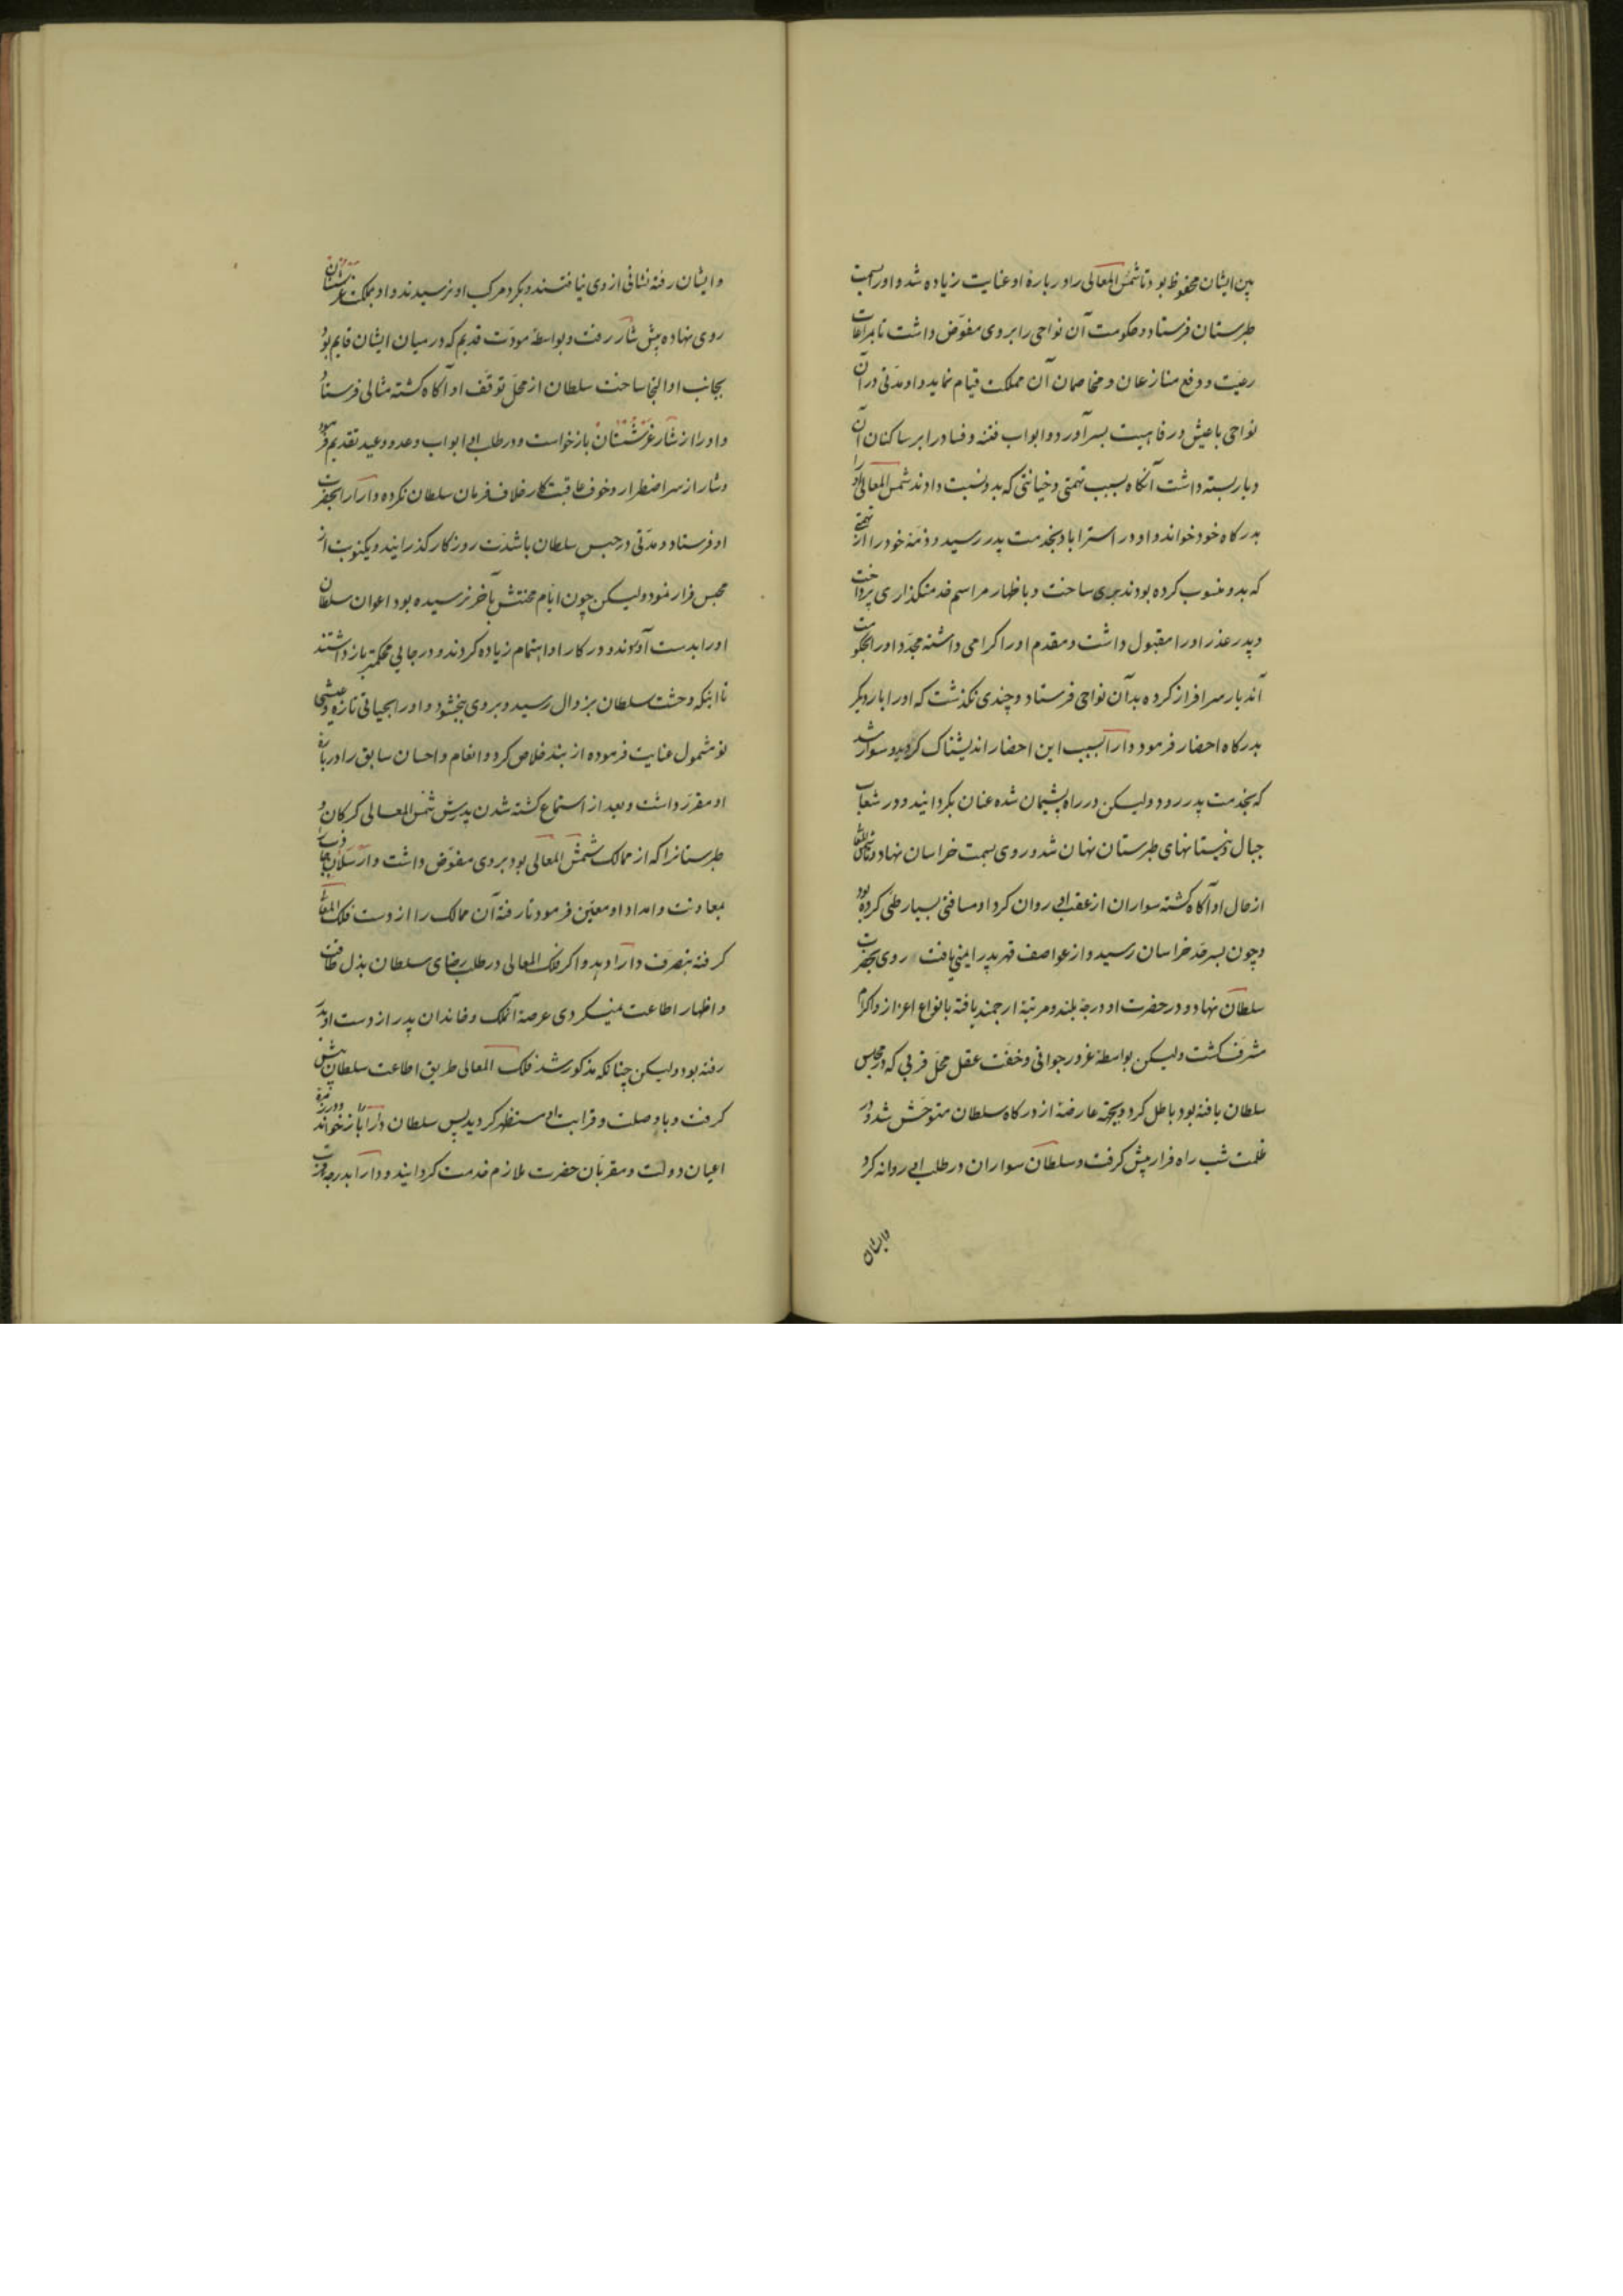 بین ایشان محفوظ بود تا شمس المعالی را در بارهٔ او عنایت زیاده شد و او را بسمت
طبرستان فرستاد و حکومت آن نواحی را بر وی مفوّض داشت تا بمراعات
رعیت و دفع منازعان و مخاصمان آن مملکت قیام نماید و او مدّتی در آن
نواحی با عیش و رفاهیت بسر آورد و ابواب فتنه و فساد را بر ساکنان آن
دیار بسته داشت آنکاه بسبب تهمتی و خیانتی که بدو نسبت دادند شمس المعالی او را
بدرکاه خود خواند و او در استراباد بخدمت پدر رسید و ذمّهٔ خود را از تهمتی
که بدو منسوب کرده بودند بری ساخت و باظهار مراسم خدمتکذاری پرداخت
و پدر عذر او را مقبول داشت و مقدم او را کرامی داشته مجدّد او را بحکومت
آندیار سرافراز کرده بدآن نواحی فرستاد و چندی نکذشت که او را بار دیکر
بدرکاه احضار فرمود دارا بسبب این احضار اندیشناک کردید و سوار شد
که بخدمت پدر رود ولیکن در راه پشیمان شده عنان بکردانید و در شعاب
جبال و نیستانهای طبرستان نهان شد و روی بسمت خراسان نهاد و شمس المعالی
از حال او آکاه کشته سواران از عقب او روان کرد او مسافتی بسیار طی کرده بود
و چون بسرحد خراسان رسید و از عواصف قهر پدر ایمنی یافت روی بحضرت
سلطان نهاد و در حضرت او درجهٔ بلند و مرتبهٔ ارجمند یافته بانواع اعزاز و اکرام
مشرّف کشت ولیکن بواسطهٔ غرور جوانی و خفّت عقل محل قربی که در مجلس
سلطان یافته بود باطل کرد و بجهة عارضهٔ از درکاه سلطان متوحّش شد و در
ظلمت شب راه فرار پیش کرفت و سلطان سواران در طلب او روانه کرد
وایشان
و ایشان رفته نشانی از وی نیافتند و بکرد مرکب او نرسیدند و او بمملکت غرشستان
روی نهاده پیش شار رفت و بواسطهٔ مودّت قدیم که در میان ایشان قایم بود
بجانب او التجا ساخت سلطان از محل توقّف او آکاه کشته مثالی فرستاد
و او را از شار غرشستان بازخواست و در طلب او ابواب وعد و وعید تقدیم فرمود
و شار از سر اضطرار و خوف عاقبت کار خلاف فرمان سلطان نکرده دارا را بحضرت
او فرستاد و مدّتی در حبس سلطان با شدّت روزکار کذرانید و یکنوبت از
محبس فرار نمود ولیکن چون ایّام محنتش بآخر نرسیده بود اعوان سلطان
او را بدست آوردند و در کار او اهتمام زیاده کردند و در جایی محکمتر بازداشتند
تا اینکه وحشت سلطان بزوال رسید و بر وی ببخشود و او را بحیاتی تازه و عیشی
نو شمول عنایت فرموده از بند خلاص کرد و انعام و احسان سابق را در بارهٔ
او مقرّر داشت و بعد از استماع کشته شدن پدرش شمس المعالی کرکان و
طبرستانرا که از ممالک شمس المعالی بود بر وی مفوّض داشت و ارسلان جاذب را
بمعاونت و امداد او معیّن فرمود تا رفته آن ممالک را از دست فلک المعالی
کرفته بتصرّف دارا دهد و اکر فلک المعالی در طلب رضای سلطان بذل طاقت
و اظهار اطاعت نمیکردی عرصهٔ آنملک و خاندان پدر از دست او بدر
رفته بود ولیکن چنانکه مذکور شد فلک المعالی طریق اطاعت سلطان پیش
کرفت و با وصلت و قرابت او مستظهر کردید پس سلطان دارا را بازخواند و در زمرهٔ
اعیان دولت و مقربان حضرت ملازم خدمت کردانید و دارا بدرجهٔ قربت